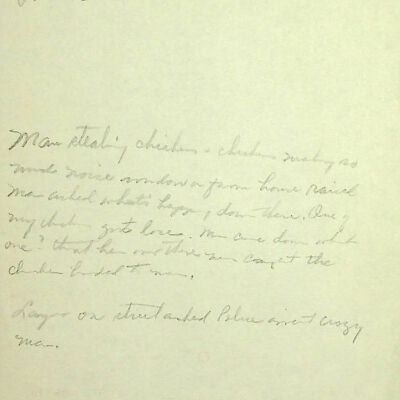 Man stealing chickens - chickens making so
much noise window on from home raised
man asked what's happ, down there. One of
my chickens got loose. Man came down which
one? that hen over there man caught the
chicken handed to man.
on street asked Police arrest crazy
man.